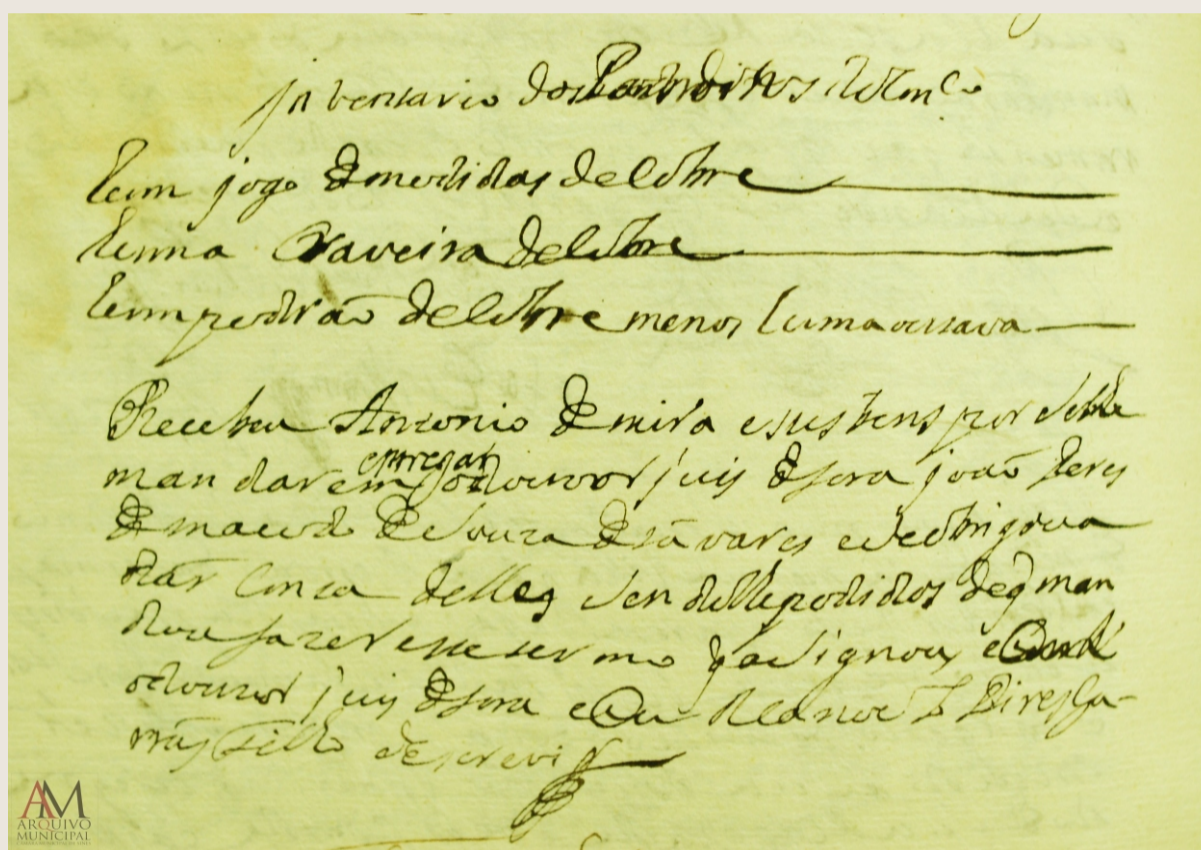 Jnventario dos
hum jogo de medidas de Cobre
huma Craveira de Cobre
hum pedraõ de Cobre menos huma outava
Recebeu Antonio de mira estes bens por Selhe
mandarem entregar o doutor juis de fora joaõ Peres
de macedo de Souza de tavares e Se obrigou a
dar Conta delles Sendolhe pedidos de q̃ man
dou fazer este termo q̃ aSignou e
o doutor juis de fora e Eu Pires Ga-
filho o escrevi
AM
ARQUIVO
MUNICIPAL